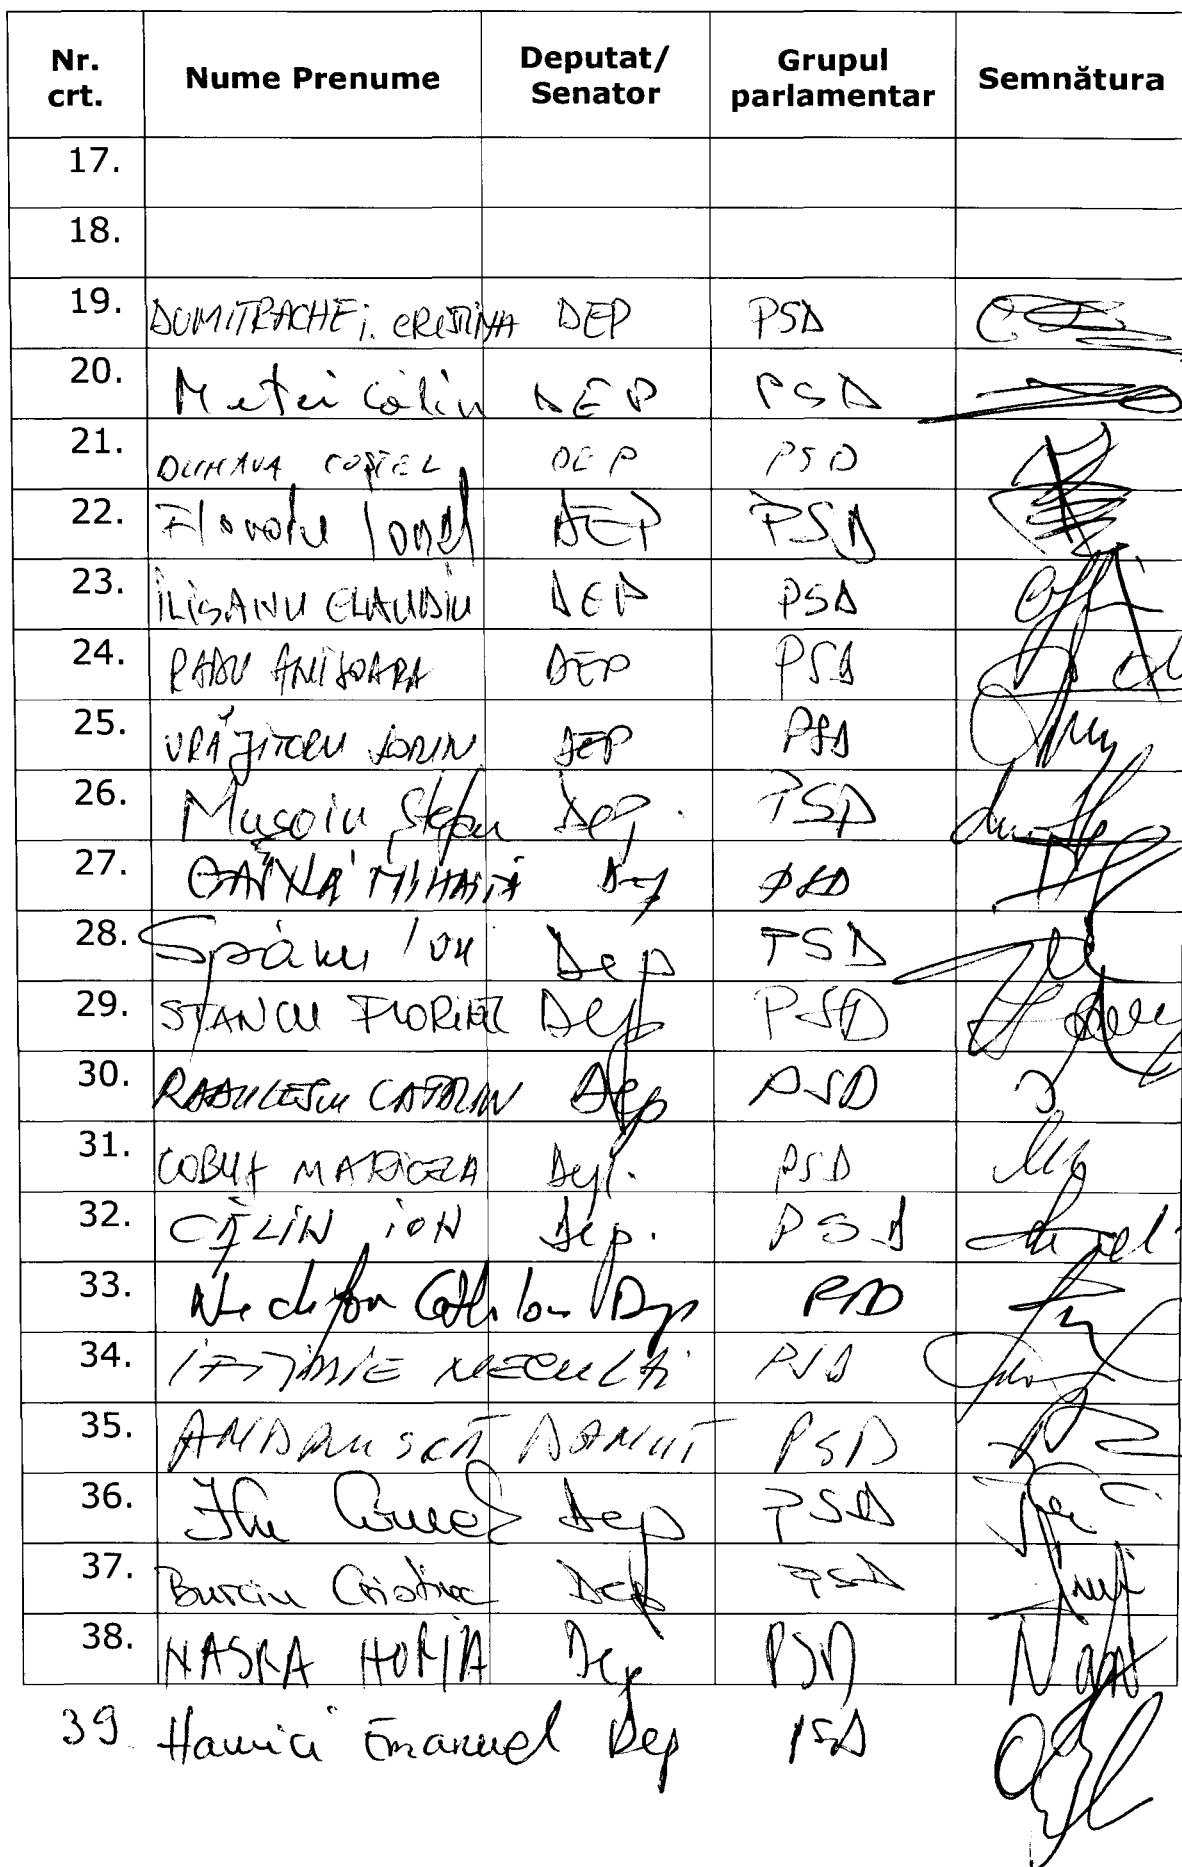 Nr. crt. Nume Prenume Deputat/ Senator Grupul parlamentar Semnătura
17.
18.
19. DUMITRACHE i. CRISTINA DEP PSD
20. Matei Călin DEP PSD
21. DUNAVA COSTEL DEP PSD
22. Floroiu Ionel DEP PSD
23. ILIȘANU CLAUDIU DEP PSD
24. RADU ANIȘOARA DEP PSD
25. VRĂJITORU SORIN DEP PSD
26. Mușoiu Ștefan Dep. PSD
27. GĂINĂ MIHĂIȚĂ Dep PSD
28. Spânu Ion Dep PSD
29. STANCU FLORINEL Dep PSD
30. RADULESCU CATALIN Dep PSD
31. COBUZ MARICELA Dep. PSD
32. CĂLIN ION Dep. PSD
33. Nechifor Dep PSD
34. IFTIMIE NECULAI PSD
35. ANDRUSCĂ DĂNUȚ PSD
36. Dep PSD
37. Burciu Cristina Dep PSD
38. NASRA HORIA Dep PSD
39. Havrici Emanuel Dep PSD